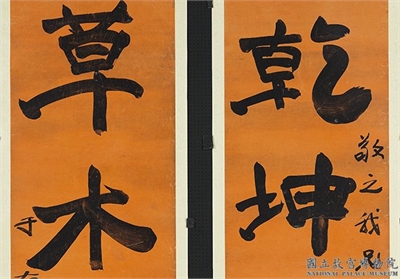 乾坤
敬之我兄
草木
于右
國立故宮博物院
NATIONAL PALACE MUSEUM